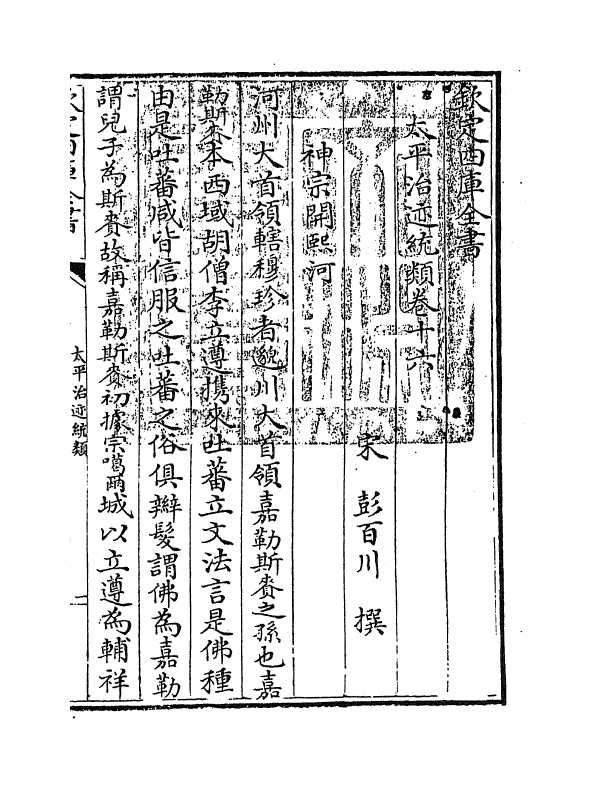 欽定四庫全書
太平治迹統類卷十六
宋 彭百川 撰
神宗開熙河
河州大首領轄穆珍者邈州大首領嘉勒斯賚之孫也嘉
勒斯賚本西域胡僧李立遵攜來吐蕃立文法言是佛種
由是吐蕃咸皆信服之吐蕃之俗俱辮髮謂佛為嘉勒
謂兒子為斯賚故稱嘉勒斯賚初據宗噶爾城以立遵為輔祥
欽定四庫全書
太平治迹統類